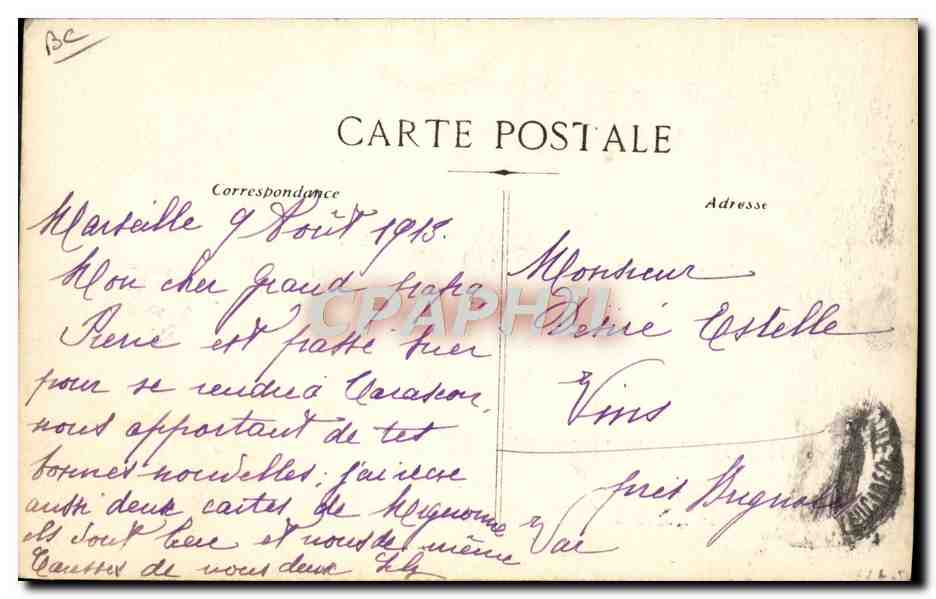 BC
CARTE POSTALE
Correspondance
Adresse
Marseille 9 Août 1913.
Mon cher Grand papa
Pierre est passé hier
pour se rendre à Tarascon,
nous apportant de tes
bonnes nouvelles, j'ai reçu
aussi deux cartes de Mignonne
ils sont bien et nous de même
de nous deux
Monsieur
Désiré Estelle
Vins
près Brignoles
Var
CPAPHIL